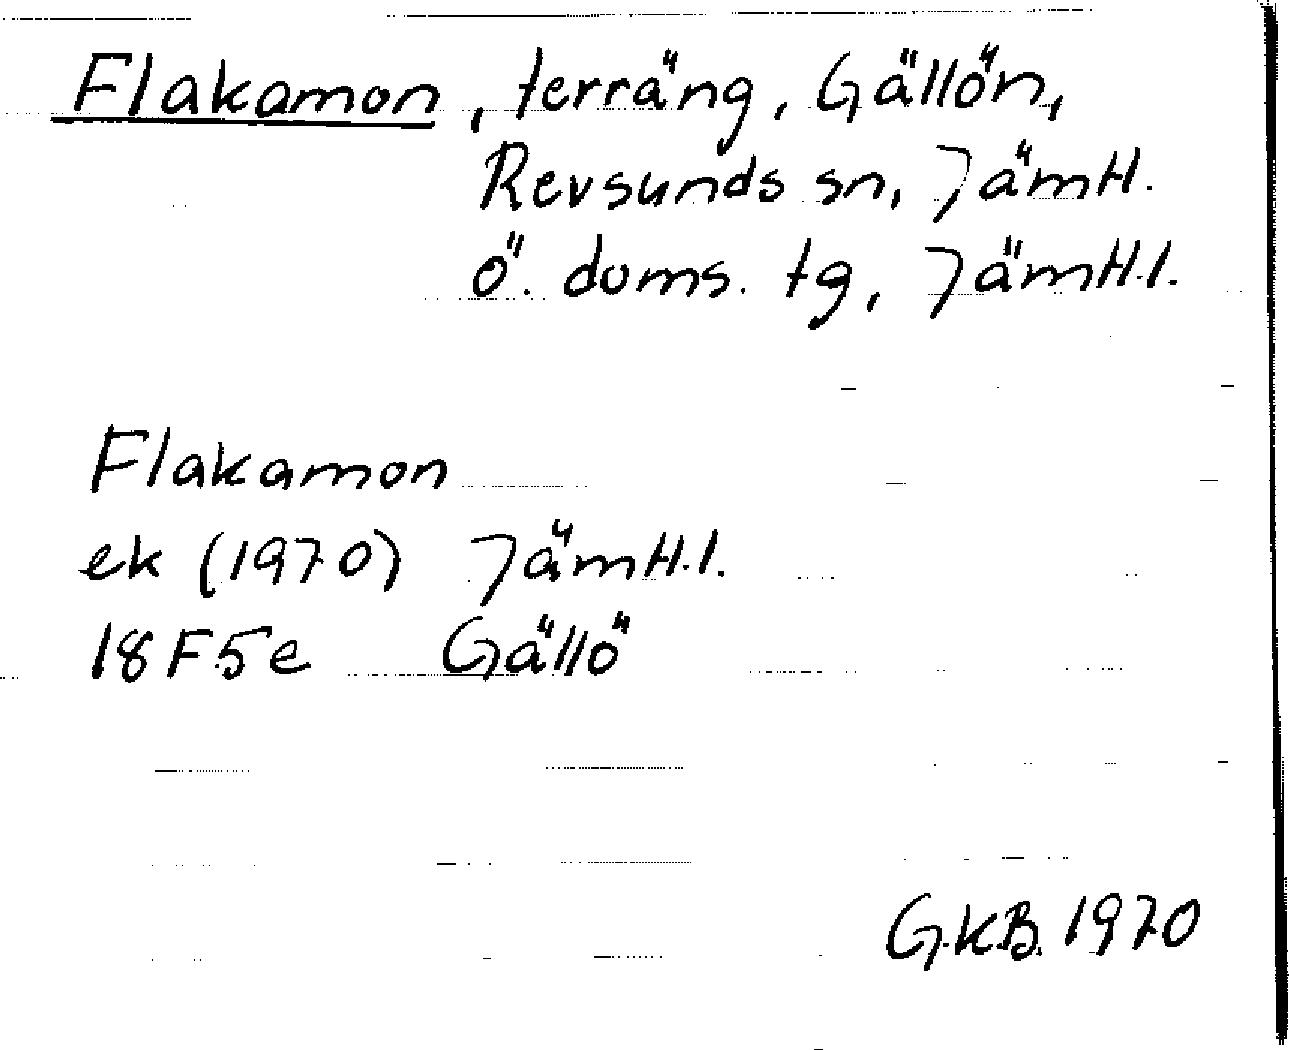 Flakamon, terräng, Gällön,
Revsunds sn, Jämtl.
Ö. doms. tg, Jämtl.l.
Flakamon
ek (1970) Jämtl.l.
18F5e Gällö
G.K.B. 1970